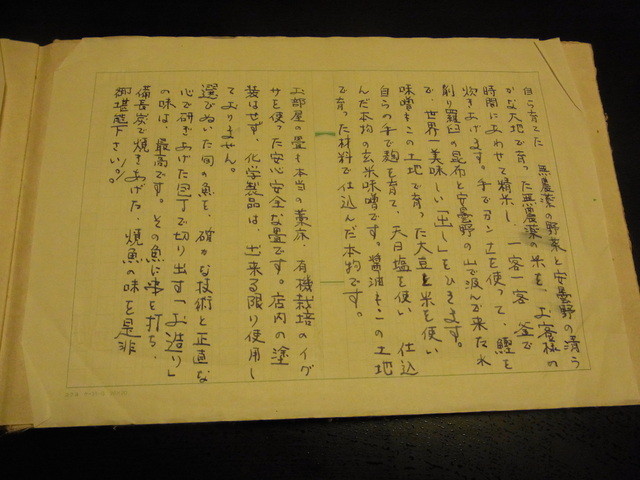 自ら育てた 無農薬の野菜と安曇野の清らかな大地で育った無農薬の米を、お客様の
時間にあわせて精米し、一客一客 釜で
炊きあげます。手でカンナを使って、鰹を
削り羅臼の昆布と安曇野の山で汲んで来た水
で、世界一美味しい「出し」をひきます。
味噌もこの土地で育った大豆と米を使い
自らの手で麹を育て、天日塩を使い 仕込
んだ本物の玄米味噌です。醤油もこの土地
で育った材料で仕込んだ本物です。
お部屋の畳も本当の藁床、有機栽培のイグ
サを使った安心安全な畳です。店内の塗
装はせず、化学製品は、出来る限り使用し
ておりません。
選びぬいた旬の魚を、確かな技術と正直な
心で研ぎあげた包丁で切り出す「お造り」
の味は、最高です。その魚に串を打ち、
備長炭で焼きあげた、焼魚の味を是非
御堪能下さい。